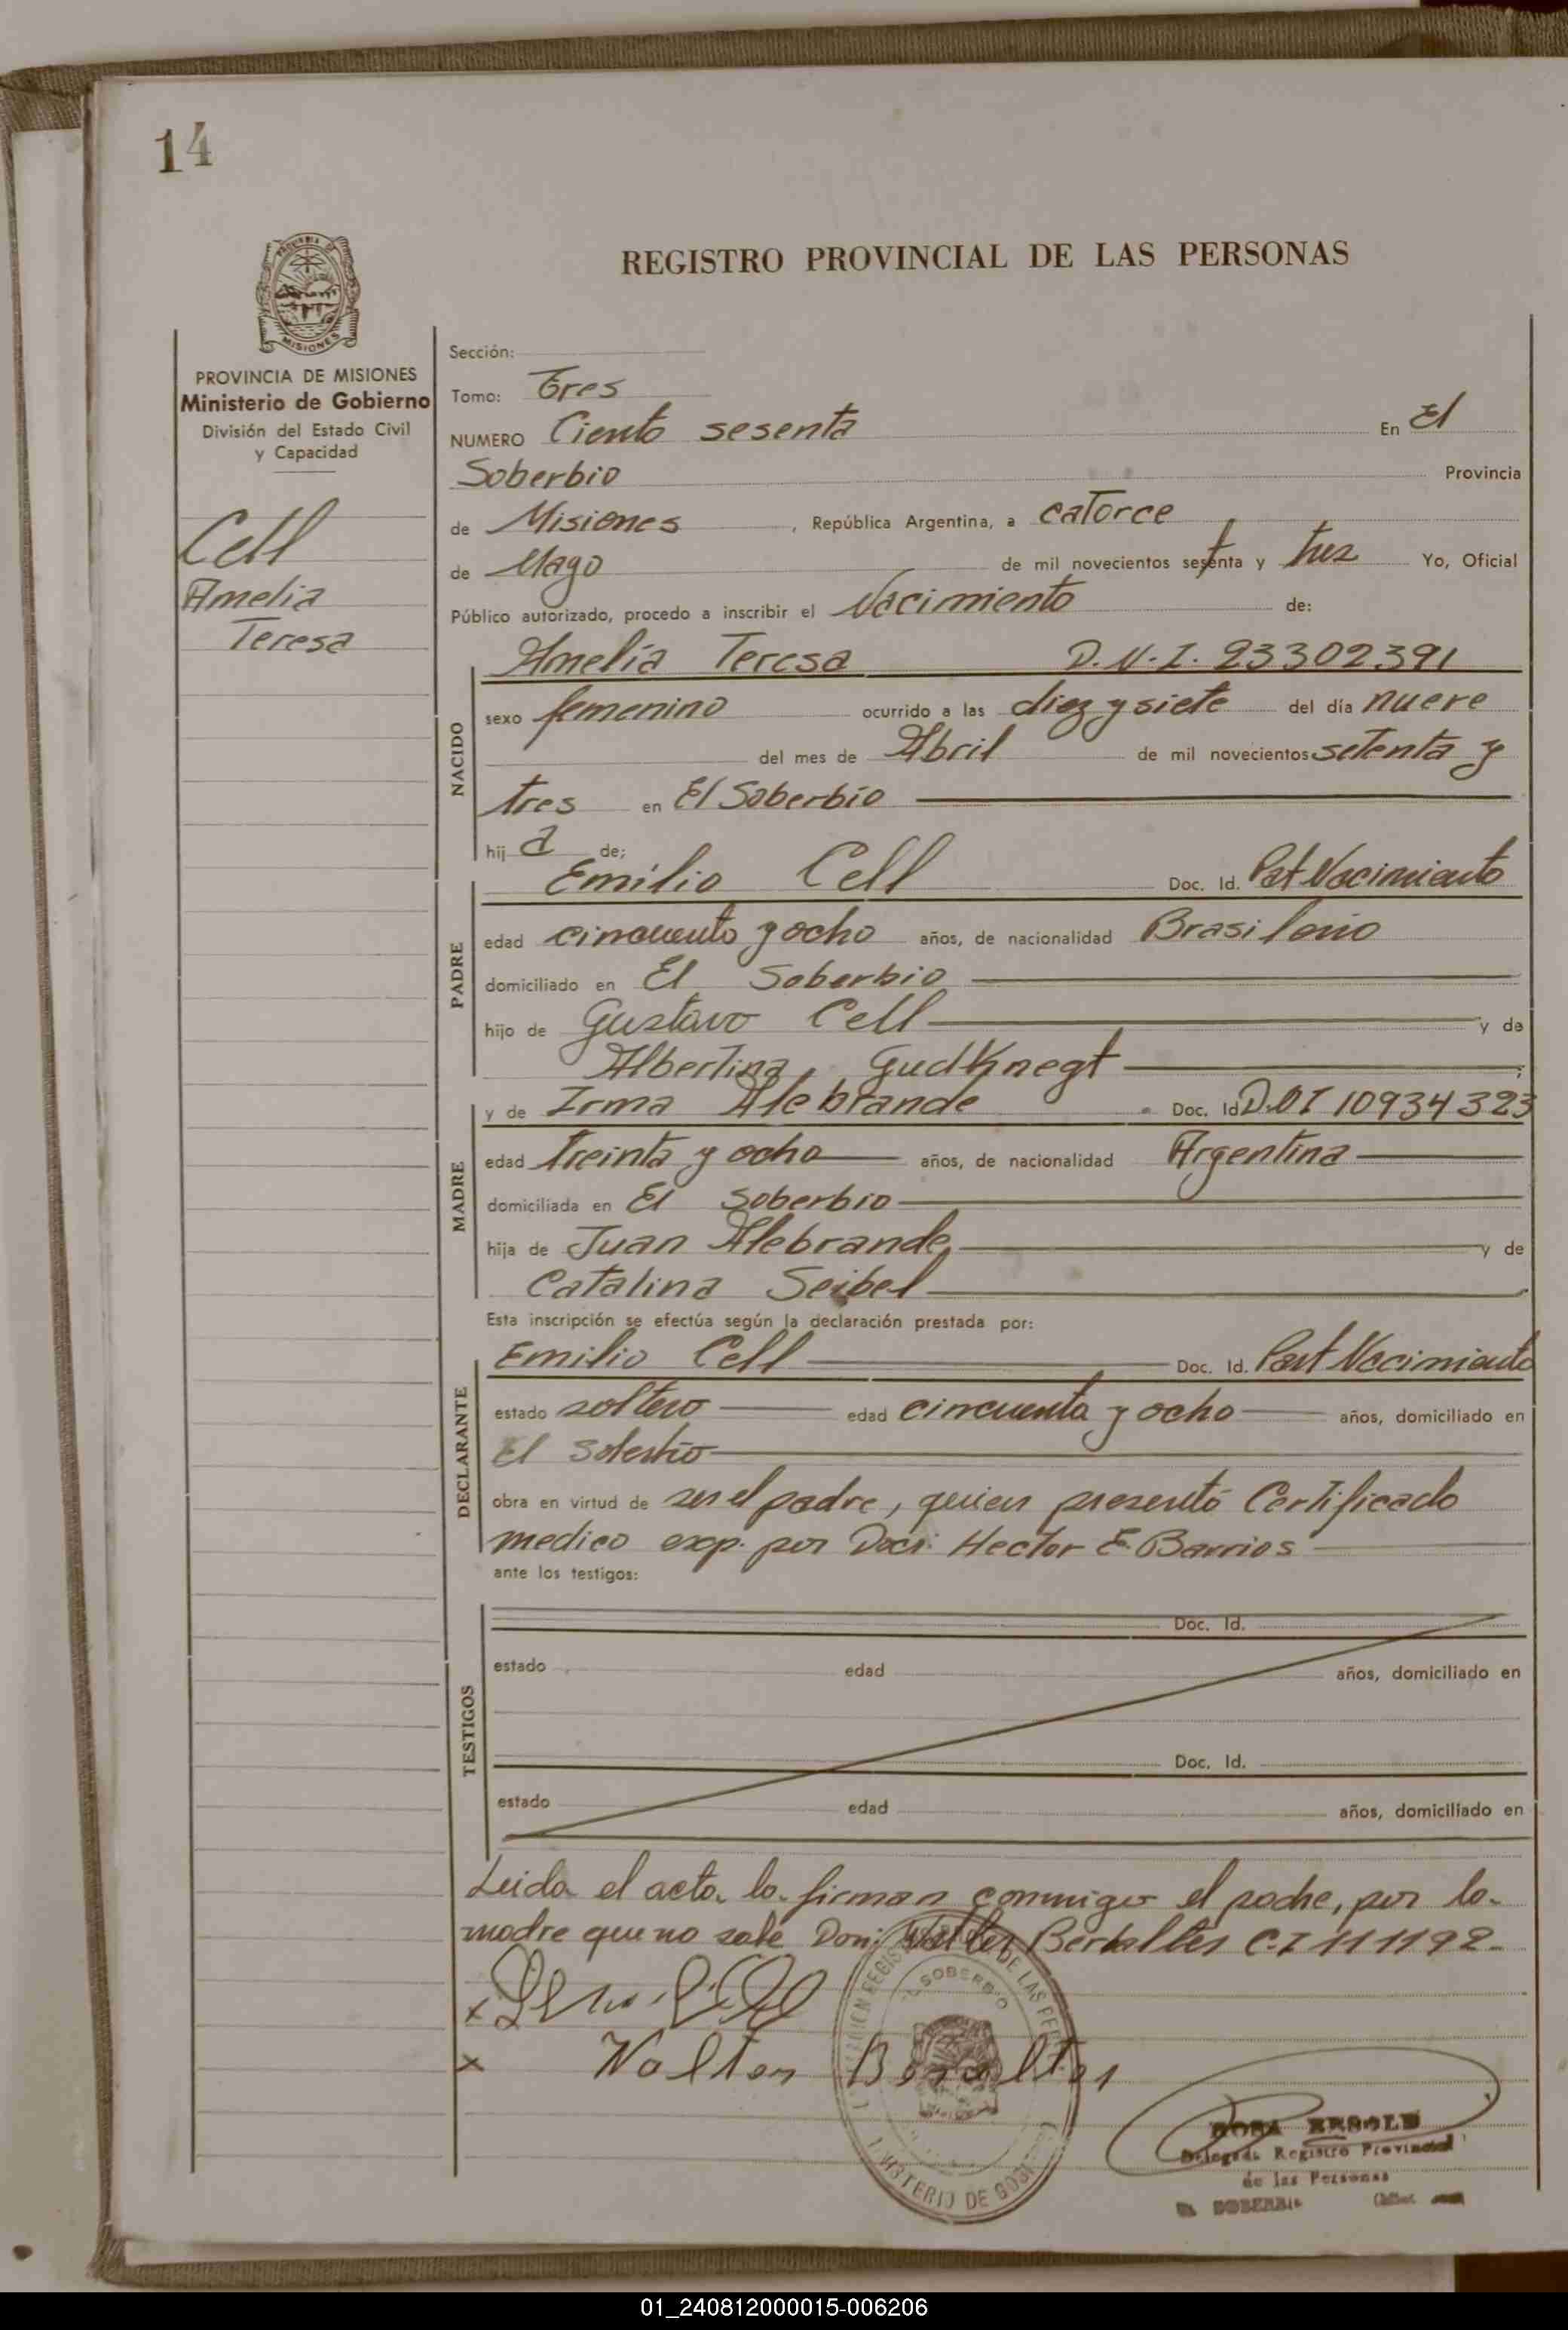 14
REGISTRO PROVINCIAL DE LAS PERSONAS
MISIONES
PROVINCIA DE MISIONES
Ministerio de Gobierno
División del Estado Civil
y Capacidad
Cell
Amelia
Teresa
Sección:
Tomo: Tres
NUMERO Ciento sesenta En El
Soberbio Provincia
de Misiones, República Argentina, a catorce
de Mayo de mil novecientos setenta y tres Yo, Oficial
Público autorizado, procedo a inscribir el Nacimiento de:
NACIDO
Amelia Teresa D.N.I. 23302391
sexo femenino ocurrido a las diez y siete del día nueve
del mes de Abril de mil novecientos setenta y
tres en El Soberbio
hij a de;
PADRE
Emilio Cell Doc. Id. Pat Nacimiento
edad cincuenta y ocho años, de nacionalidad Brasileño
domiciliado en El Soberbio
hijo de Gustavo Cell y de
Albertina GudKnegt ;
MADRE
y de Irma Alebrande Doc. Id D.NI 10934323
edad treinta y ocho años, de nacionalidad Argentina
domiciliada en El Soberbio
hija de Juan Alebrande y de
Catalina Seibel
Esta inscripción se efectúa según la declaración prestada por:
DECLARANTE
Emilio Cell Doc. Id. Part Nacimiento
estado soltero edad cincuenta y ocho años, domiciliado en
El Soberbio
obra en virtud de ser el padre, quien presentó Certificado
medico exp. por Doct: Hector E. Barrios
ante los testigos:
TESTIGOS
Doc. Id.
estado edad años, domiciliado en
Doc. Id.
estado edad años, domiciliado en
Leida el acta la firman conmigo el padre, por la
madre que no sabe Don: Walter C.I 111192
SOBERBIO
DE LAS PER
MINISTERIO DE GOBI
Delegada Registro Provincial
de las Personas
SOBERBIO
01_240812000015-006206